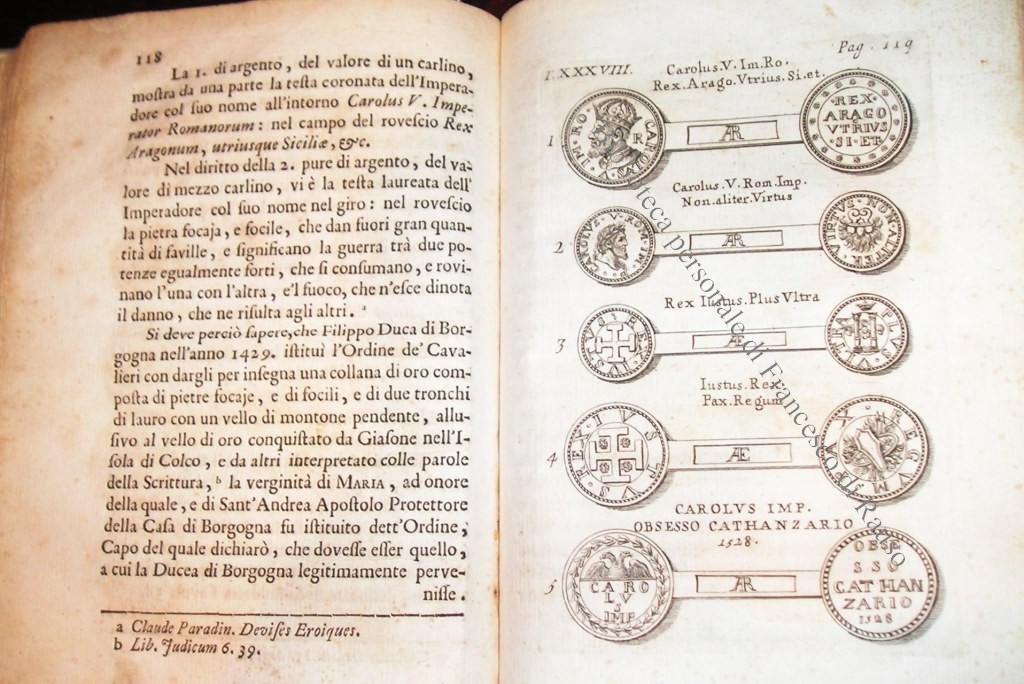 118
La 1. di argento, del valore di un carlino,
moſtra da una parte la teſta coronata dell'Impera-
dore col ſuo nome all'intorno Carolus V. Impe-
rator Romanorum: nel campo del roveſcio Rex
Aragonum, utriusque Siciliæ, &c.
Nel diritto della 2. pure di argento, del va-
lore di mezzo carlino, vi è la teſta laureata dell'
Imperadore col ſuo nome nel giro: nel roveſcio
la pietra focaja, e focile, che dan fuori gran quan-
tità di faville, e ſignificano la guerra trà due po-
tenze egualmente forti, che ſi conſumano, e rovi-
nano l'una con l'altra, e'l fuoco, che n'eſce dinota
il danno, che ne riſulta agli altri. a
Si deve perciò ſapere, che Filippo Duca di Bor-
gogna nell'anno 1429. iſtituì l'Ordine de' Cava-
lieri con dargli per inſegna una collana di oro com-
poſta di pietre focaje, e di focili, e di due tronchi
di lauro con un vello di montone pendente, allu-
ſivo al vello di oro conquiſtato da Giaſone nell'I-
ſola di Colco, e da altri interpretato colle parole
della Scrittura, b la verginità di MARIA, ad onore
della quale, e di Sant'Andrea Apoſtolo Protettore
della Caſa di Borgogna fu iſtituito dett'Ordine,
Capo del quale dichiarò, che doveſſe eſſer quello,
a cui la Ducea di Borgogna legitimamente perve-
niſſe.
a Claude Paradin. Deviſes Eroiques.
b Lib. Judicum 6. 39.
Pag. 119
T. XXXVIII.
Carolus.V. Im.Ro.
Rex.Arago.Vtrius.Si.et.
1
CAROLVS V IM RO
R
AR
REX
ARAGO
VTRIVS
SI ET
Carolus.V.Rom.Imp.
Non.aliter.Virtus
2
CAROLVS V ROM IMP
AR
VIRTVS NON ALITER
Rex Iustus.Plus Vltra
3
IVSTVS REX
AE
PLVS VLTRA
Iustus.Rex
Pax.Regum
4
IVSTVS REX
AE
PAX REGVM
CAROLVS IMP.
OBSESSO CATHANZARIO
1528.
5
CARO
LV
S
IMP
AR
OBSE
SSO
CATHAN
ZARIO
1528
teca personale di Francescont Raro